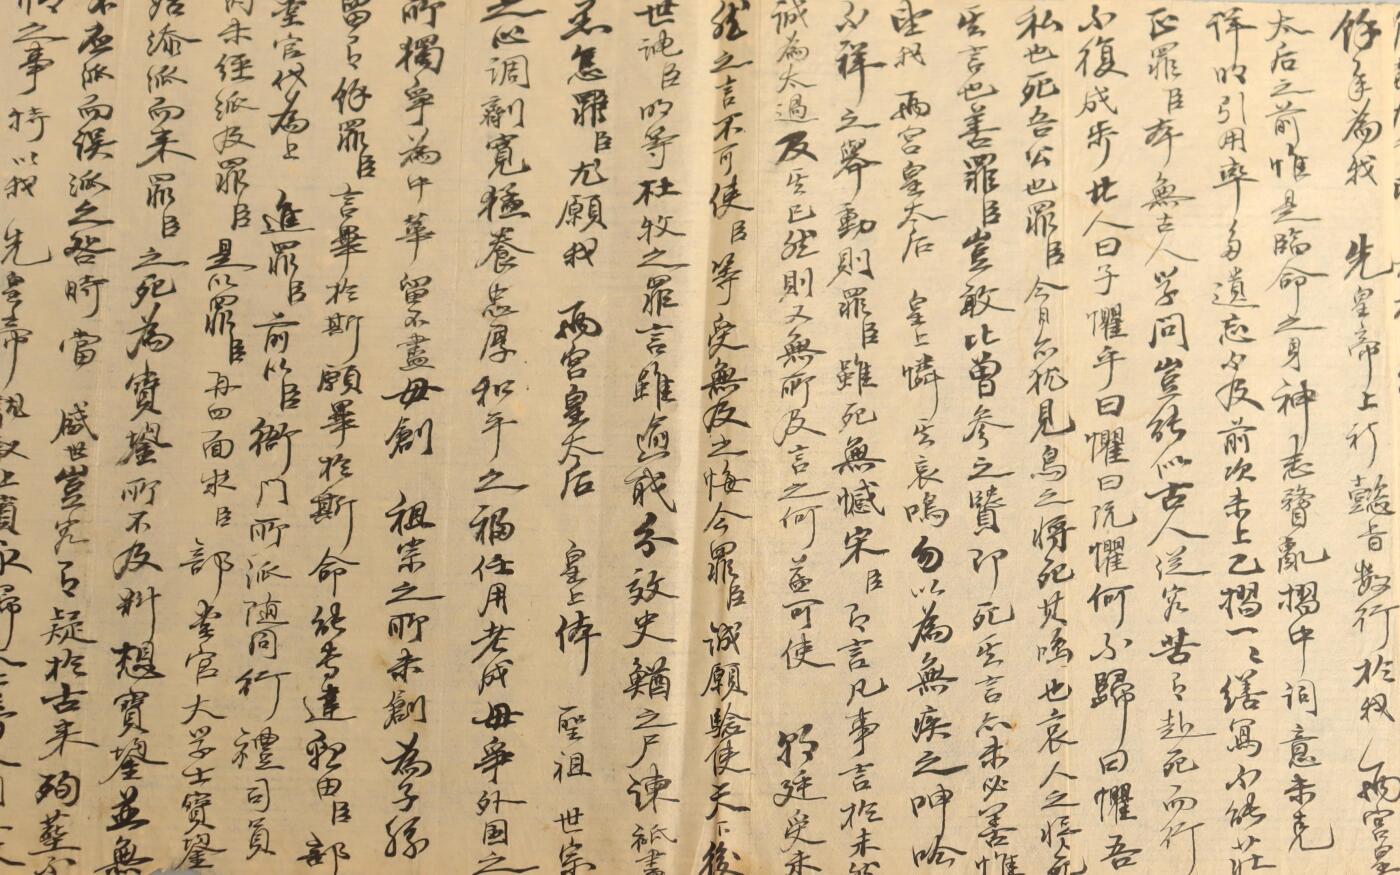 餘年為我 先皇帝上祈懿旨數行於我 兩宮皇
太后之前惟是臨命之身神志瞀亂摺中詞意未克
詳明引用率多遺忘不及前次未上乙摺一一繕寫不能莊
正罪臣本無古人學問豈能似古人從容昔有赴死而行
不復成步人曰子懼乎曰懼曰既懼何不歸曰懼吾
私也死吾公也罪臣今日亦猶見鳥之將死其鳴也哀人之將死
其言也善罪臣豈敢比曾參之賢即死其言亦未必善惟
望我 兩宮皇太后 皇上憐其哀鳴勿以為無疾之呻吟
不祥之舉動則罪臣雖死無憾宋臣有言凡事言於未然
誠為太過及其已然則又無所及言之何益可使 朝廷受未
然之言不可使臣等受無及之悔今罪臣誠願驗使天下後
世臣明等杜牧之罪言雖逾職分效史鰌之尸諫祇盡
罪臣尤願我 兩宮皇太后 皇上體 聖祖 世宗
之心調劑寬猛養忠厚和平之福任用老成毋爭外國之
所獨爭為中華留不盡毋創 祖宗之所未創為子孫
留有餘罪臣言畢於斯願畢於斯命能專達由臣部
堂官代為上 進罪臣前以臣衙門所派隨同行禮司員
內未經派及罪臣是以罪臣再四面求臣部堂官大學士寶鋆
始添派而來罪臣之死為寶鋆所不及料想寶鋆並無
不應派而誤派之咎時當 盛世豈容有疑於古來殉葬不
情之事特以我 先皇帝龍馭上賓永歸天